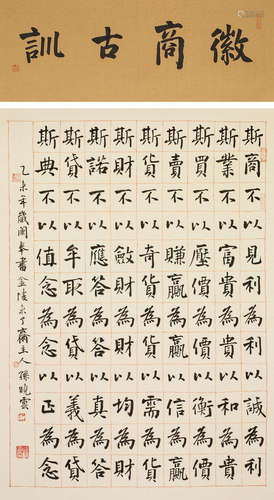 徽商古訓
斯商不以見利為利以誠為利
斯業不以富貴為貴以和為貴
斯買不以壓價為價以衡為價
斯賣不以賺贏為贏以信為贏
斯貨不以奇貨為貨以需為貨
斯財不以斂財為財以均為財
斯諾不以應答為答以真為答
斯貸不以牟取為貸以義為貸
斯典不以值念為念以正為念
乙未年歲闌書金陵未了齋主人孫曉雲